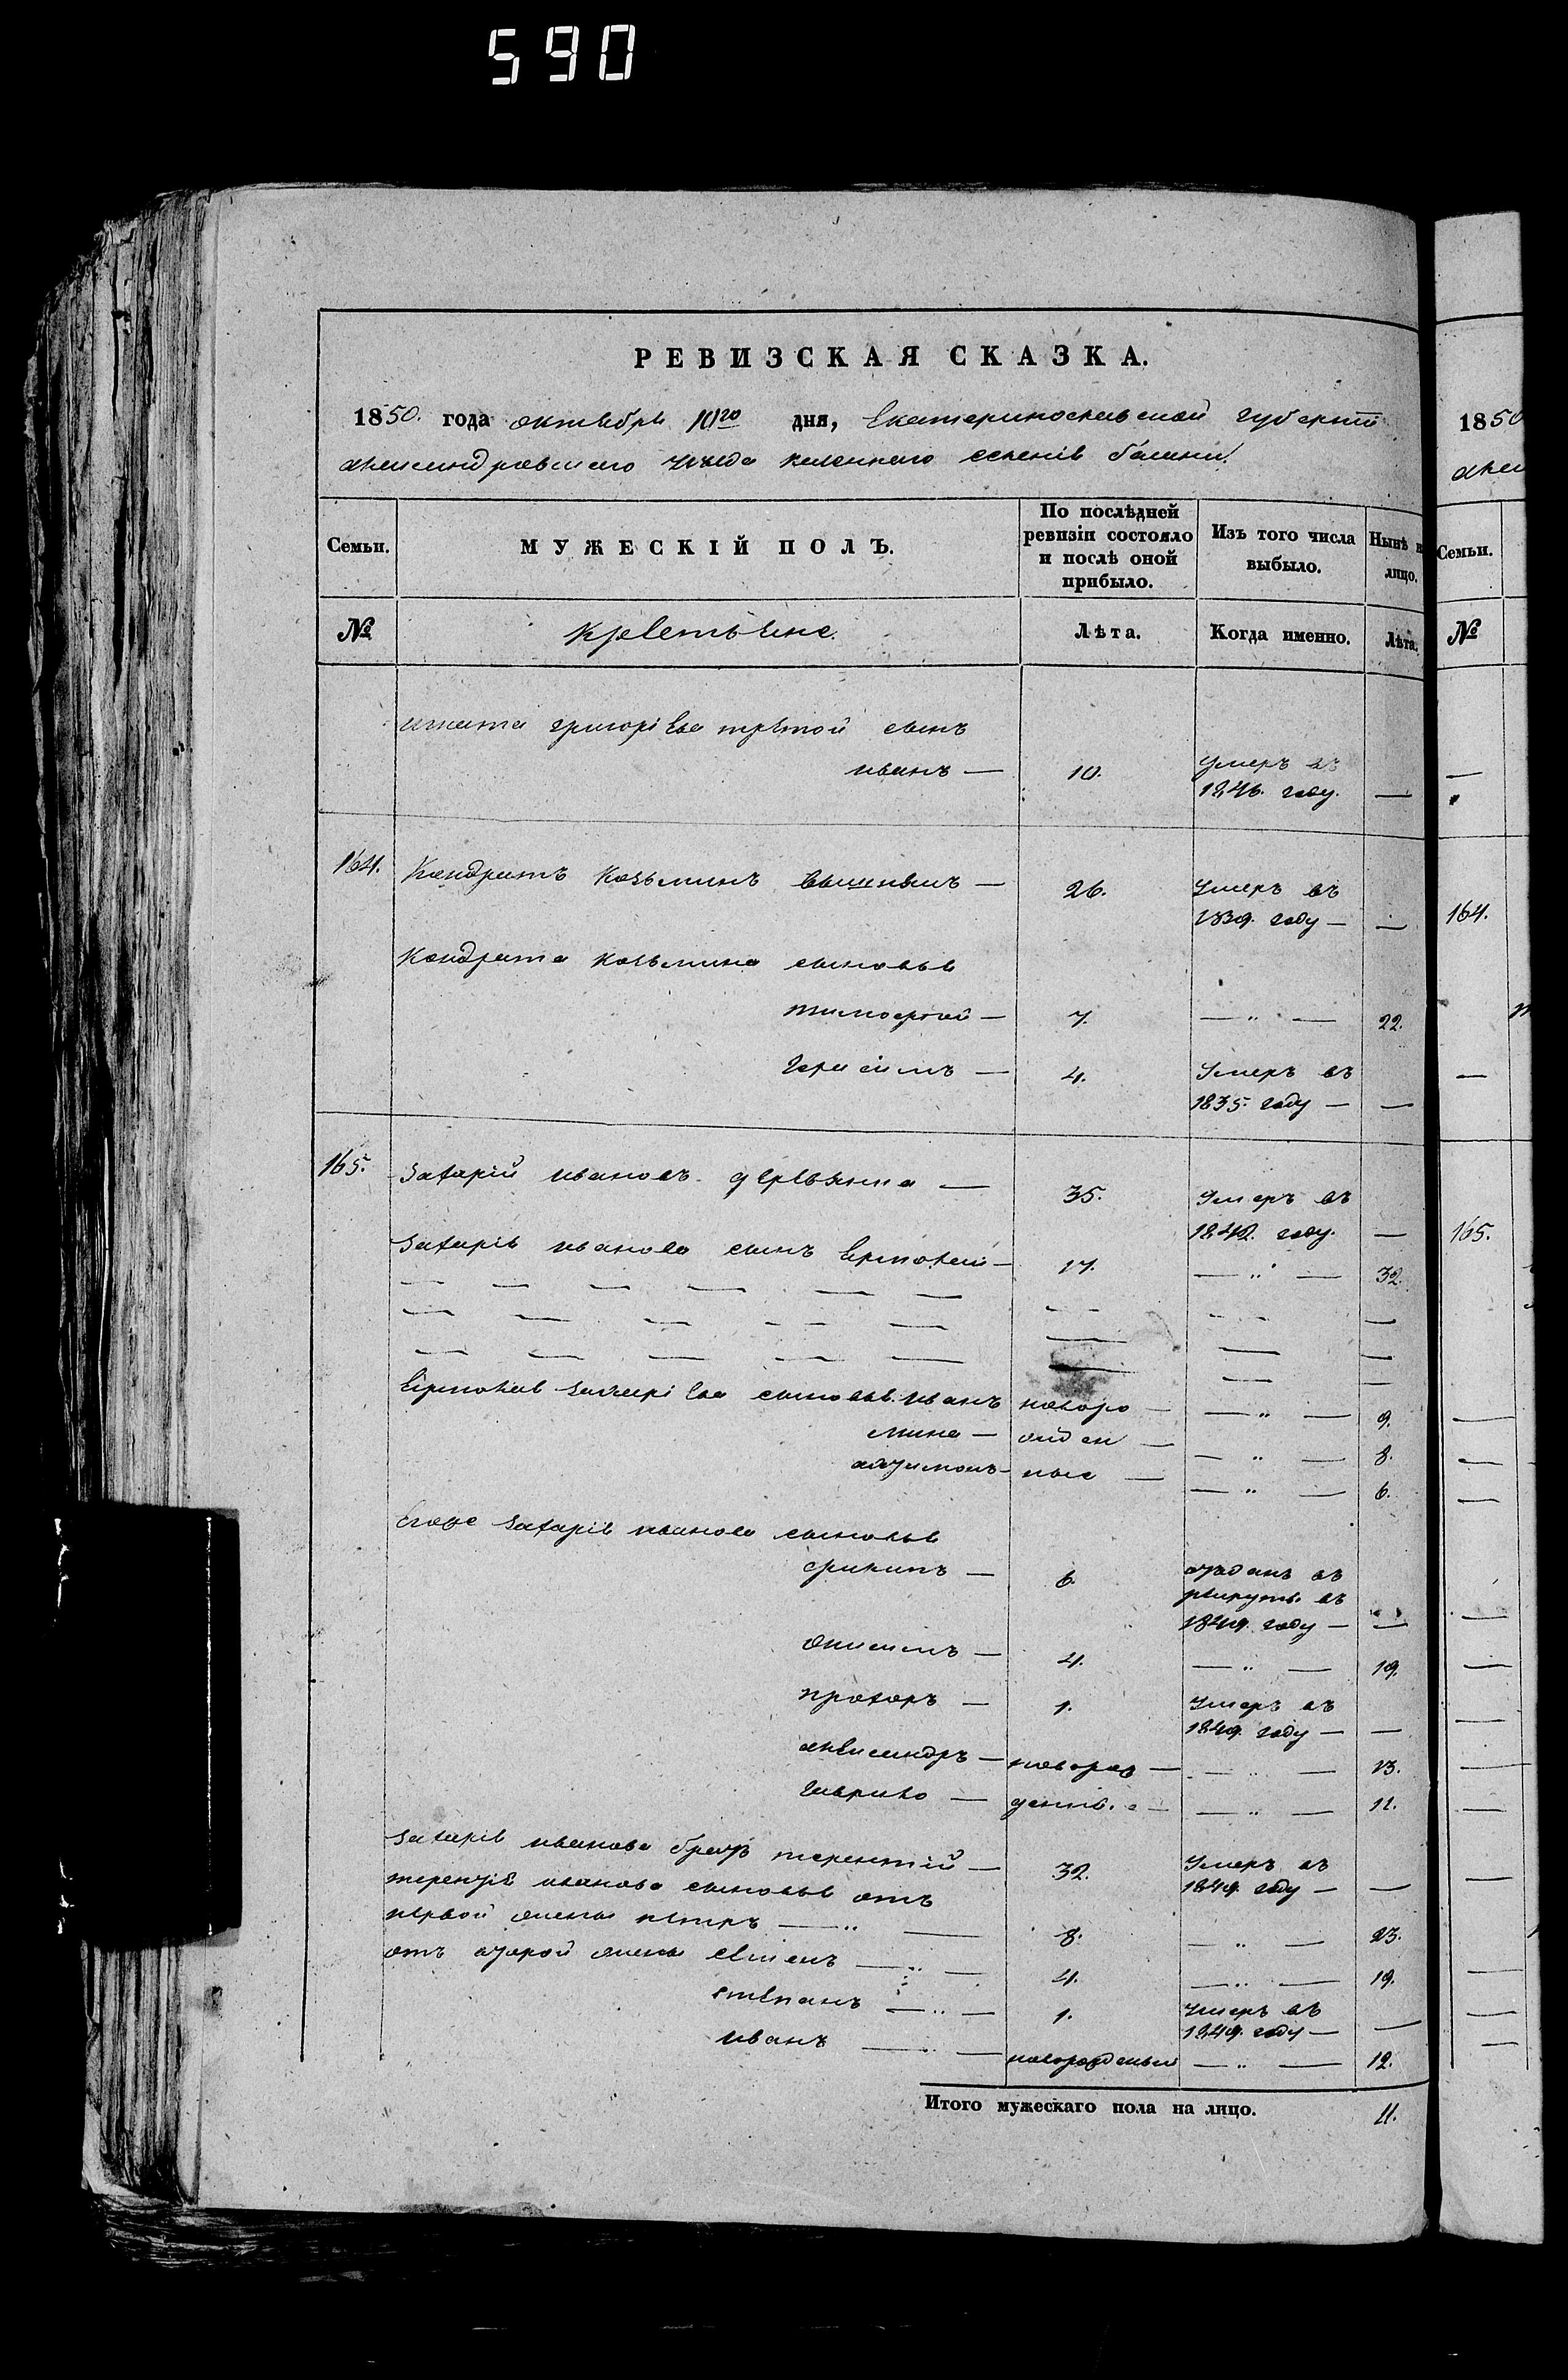 590
РЕВИЗСКАЯ СКАЗКА.
1850. года октября 10го дня, Екатеринославской губернiи
александровского уезда казенного селенiя
Семьи.
МУЖЕСКIЙ ПОЛЪ.
По послѣдней ревизiи состояло и послѣ оной прибыло.
Изъ того числа выбыло.
Нынѣ н лицо.
№
крестьяне.
Лѣта.
Когда именно.
Лѣта.
игната григорiева третой сынъ
иванъ — 10. умеръ въ
1846. году. —
164. Кондратъ козьминъ — 26. Умеръ въ
1839. году — —
Кондрата козьмина сыновья
тимофей — 7. — „ — 22.
герасимъ — 4. Умеръ въ
1835. году — —
165. Захарiй ивановъ деревянка — 35. Умеръ въ
1842. году. —
Захарiя иванова сынъ Ермолай — 17. — „ — 32.
Ермолая захарiева сыновья иванъ новоро — — „ — 9.
мина — жден — — „ — 8.
ные — — „ — 6.
Егоже Захарiя иванова сыновья
филипъ — 6. отданъ въ
рекруты въ
1849. году — —
онисимъ — 4. — „ — 19.
прохоръ — 1. Умеръ въ
1849. году — —
александръ — новорож — — „ — 13.
гаврило — — „ — 11.
Захарiя иванова братъ терентiй — 32. Умеръ въ
1849. году — —
терентiя иванова сыновья отъ
первой жены петръ — „ — 8. — „ — 23.
отъ второй жены семенъ — „ — 4. — „ — 19.
степанъ — „ — 1. Умеръ въ
1849. году — —
иванъ — „ — новорожденый — „ — 12.
Итого мужескаго пола на лицо. 11.
1850
алек
Семьи.
№
164.
165.